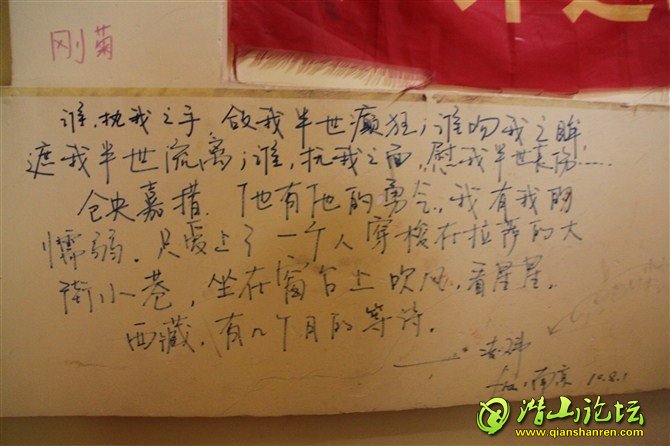 刚菊
谁，执我之手 敛我半世癫狂；谁吻我之眸
遮我半世流离；谁，抚我之面，慰我半世哀伤……
仓央嘉措．他有他的勇气，我有我的
懦弱．只爱上了一个人穿梭在拉萨的大
街小巷，坐在窗台上吹风，看星星．
西藏．有几个月的等待．
南京 10.8.1
潜山论坛
www.qianshanren.com